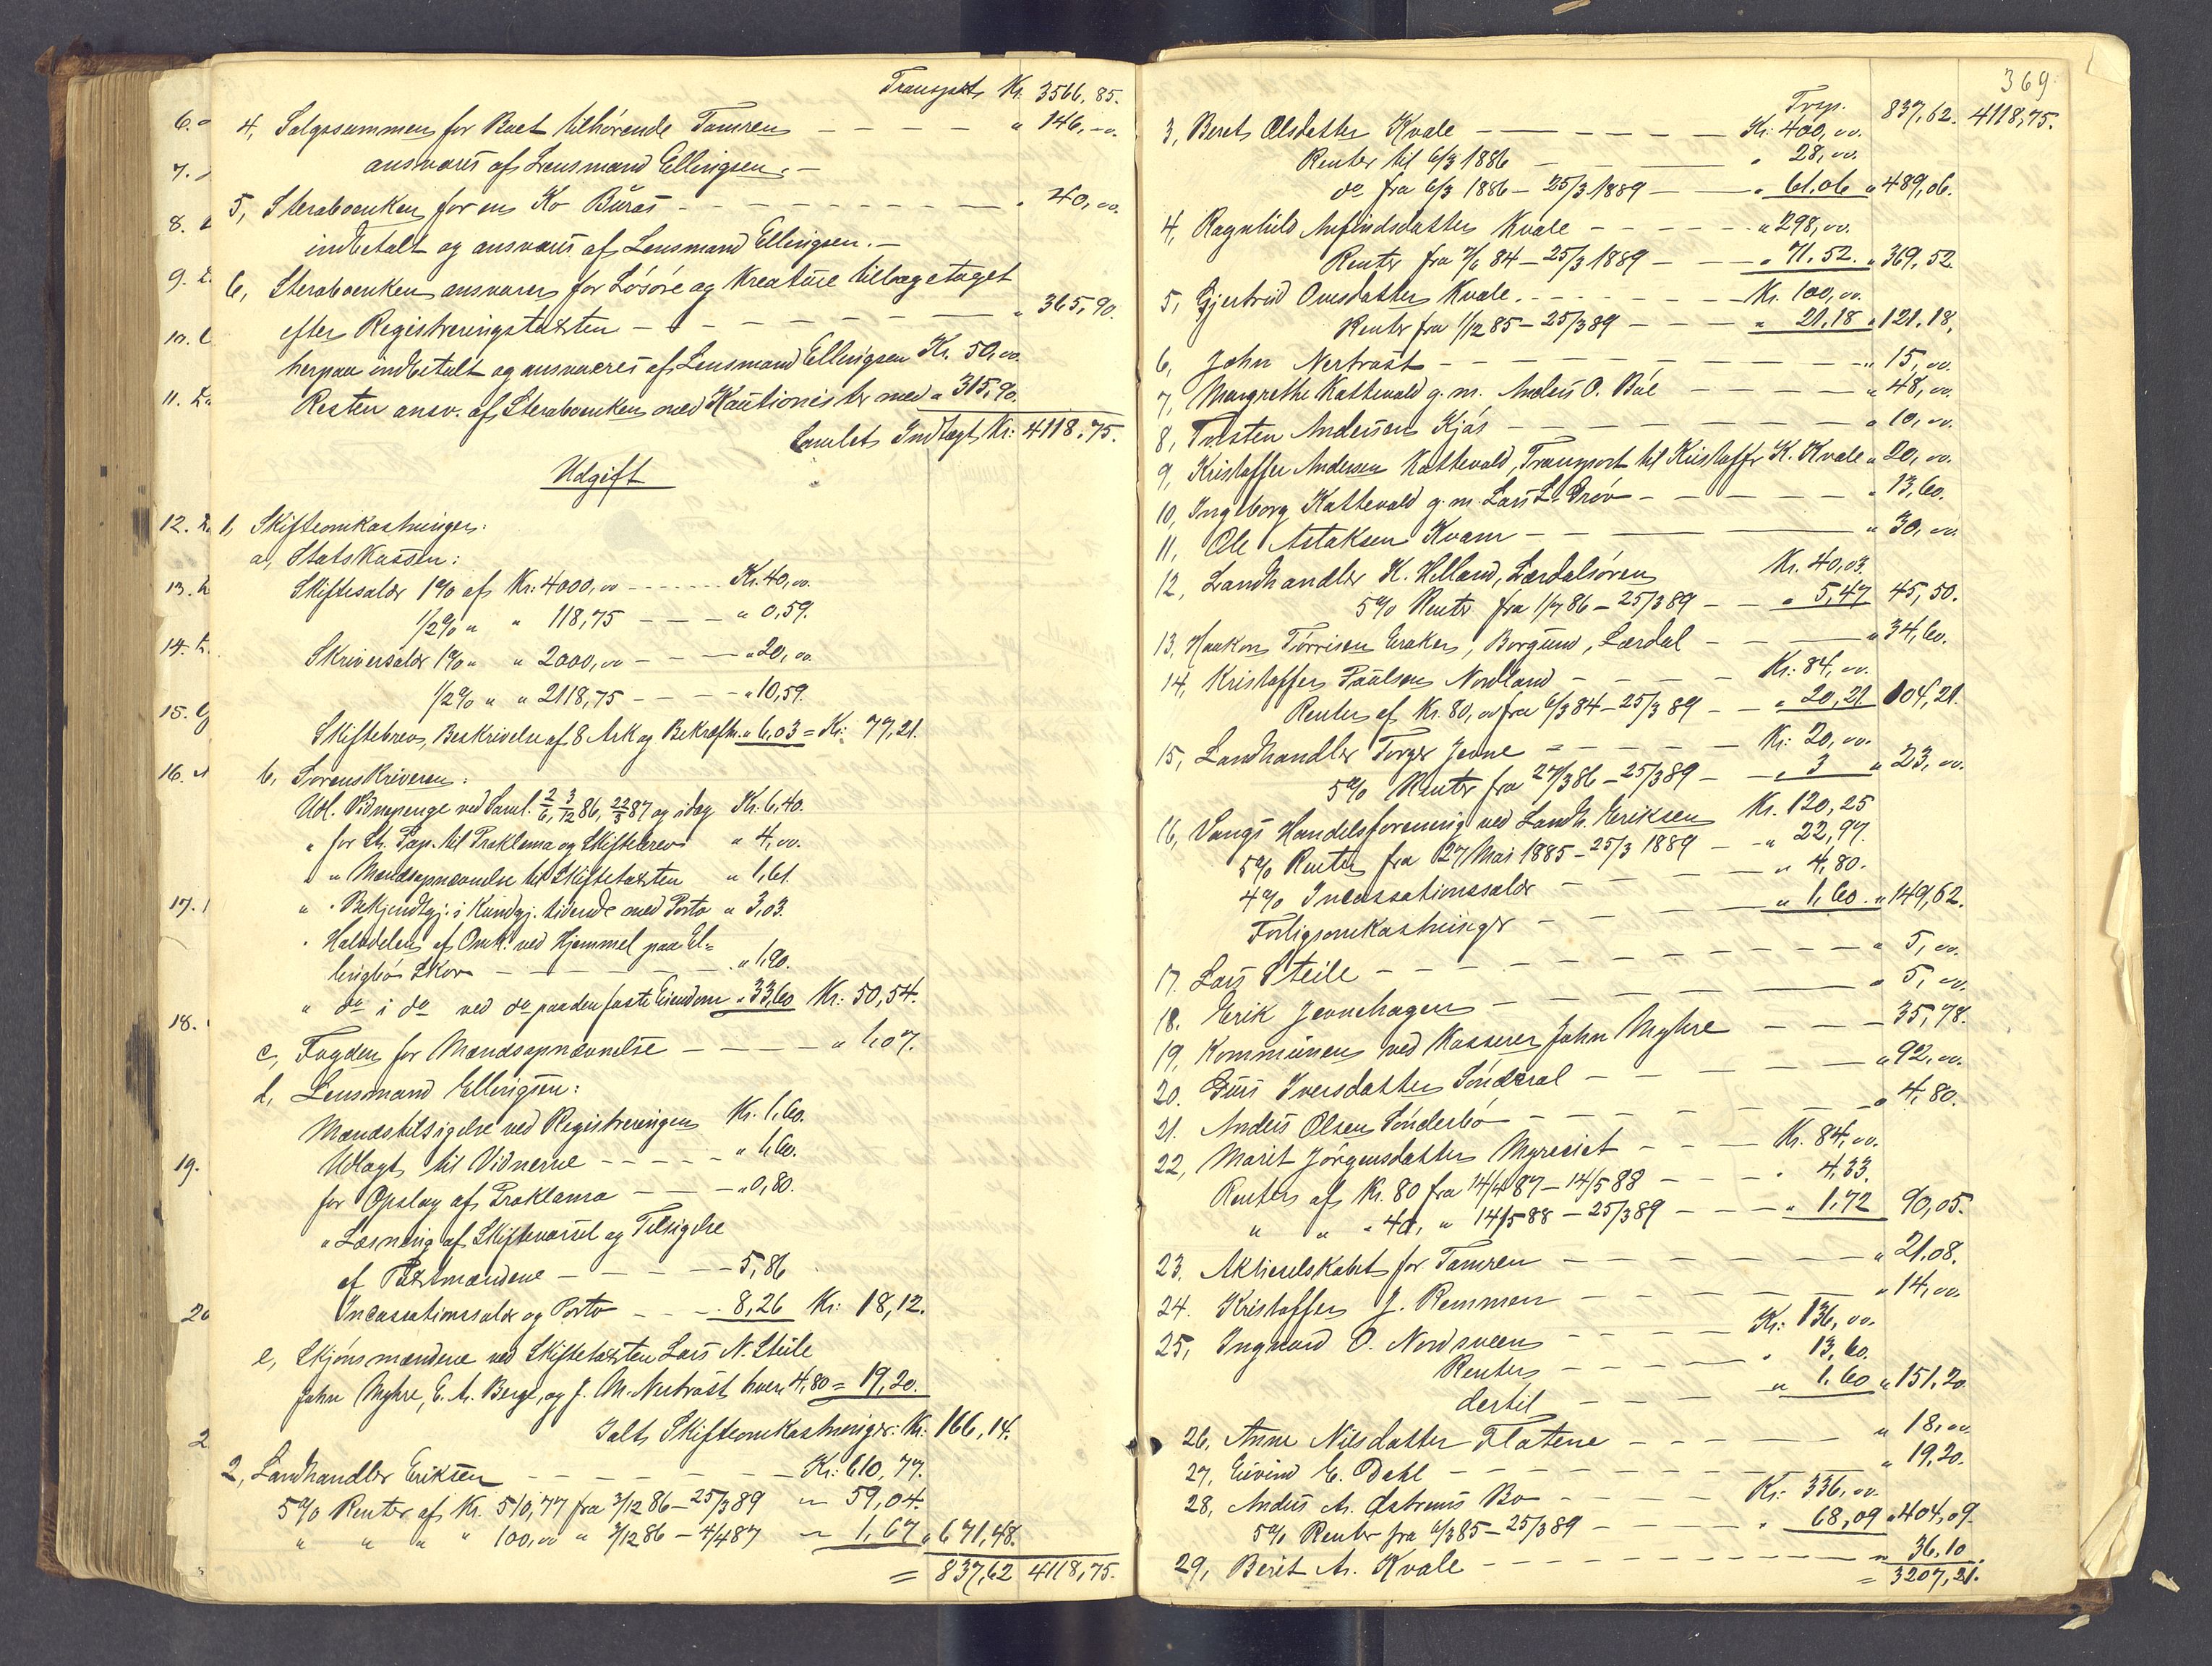 Transport Kr. 3566,85.
4, Salgssummen for Boet tilhørende Tømren — — — — " 146,00.
ansvares af Lensmand Ellingsen. —
5, Stervboenken for en Ko Buras — — — — " 40,00.
indbetalt og ansvares af Lensmand Ellingsen. —
6, Stervboenken ansvarer for Løsøre og Kreature tilbagetaget
efter Registreringstaxten — — — — — " 365,90.
herpaa indbetalt og ansvares af Lensmand Ellingsen Kr. 50,00.
Resten ansv. af Sterboenken med Kautionister med " 315,90.
Samlet Indtægt Kr: 4118,75.
Udgift
1, Skifteomkostninger:
a, Statskassen:
Skiftesalær 1% af Kr: 4000,00 — — — Kr. 40,00.
1/2% " " 118,75 — — — " 0,59.
Skriversalær 1% " " 2000,00 — — — " 20,00.
1/2% " " 2118,75 — — — " 10,59.
Skiftebrev, Beskrivelse af 8 Ark og Bekræftn. " 6,03 = Kr: 77,21.
b, Sorenskriveren:
Udl. Vidnepenge ved Saml. 2/6, 3/12 86, 22/3 87 og idag Kr. 6,40.
" for St. Pap. til Proklama og Skiftebrev " 4,00.
" " Mændsopnævnelse til Skiftetaxten " 1,61.
" " Bekjendtgj. i Kundgj. tidende med Porto " 3,03.
" Halvdelen af Omk. ved Hjemmel paa El=
lingbø Skov — — — — — " 1,90.
" do i do ved do paa den faste Eiendom " 33,60 Kr: 50,54.
c, Fogden for Mændsopnævnelse — — — " 1,07.
d, Lensmand Ellingsen:
Mændstilsigelse ved Registreringen Kr. 1,60.
Udlagt til Vidnerne — — — — " 1,60.
for Opslag af Proklama — — — " 0,80.
" Læsning af Skiftevarsel og Tilsigelse
af Taxtmændene — — — — 5,86
Incassationssalær og Porto — — 8,26 Kr: 18,12.
e, Skjønsmændene ved Skiftetaxten Lars N. Steile
John Myhre, E. A. Berge, og J. M. Nertrøst hver 4,80 = 19,20.
Ialt Skifteomkostninger: Kr: 166,14.
2, Landhandler Eriksen — — — — — Kr: 610,77.
5% Renter af Kr. 510,77 fra 3/12 86 – 25/3 89 " 59,04.
" " " " 100,00 " 3/12 86 – 4/4 87 " 1,67 " 671,48.
= 837,62 4118,75.
6.
7.
8.
9.
10.
11.
12.
13.
14.
15.
16.
17.
18.
19.
20
2
369
Trsp. 837,62. 4118,75.
3, Berit Olsdatter Kvale — — — — — Kr: 400,00.
Renter til 6/3 1886 — — — " 28,00.
do fra 6/3 1886 – 25/3 1889 — — " 61,06 " 489,06.
4, Ragnhild Arfindsdatter Kvale — — — — " 298,00.
Renter fra 7/6 84 – 25/3 1889 — — " 71.52. " 369,52.
5, Gjertrud Ovesdatter Kvale. — — — — Kr. 100,00.
Renter fra 1/12 85 – 25/3 89 — — — " 21,18 " 121,18.
6, John Nertrøst — — — — — — — " 15,00.
7, Margrethe Kattevold g. m. Anders O. Bøe — — — " 48,00.
8, Torsten Andersen Kjøs — — — — — — " 10,00.
9, Kristoffer Andersen Kattevold, Transport til Kristoffr K. Kvale " 20,00.
10, Ingeborg Kattevold g. m. Lars L. Drøv — — — — " 13,60.
11, Ole Astaksen Kvam — — — — — " 30,00.
12, Landhandler K. Helland, Lærdalsøren Kr. 40,03.
5% Renter fra 1/7 86 – 25/3 89 — — " 5,47 45,50.
13, Haakon Tørrisen Eraker, Borgund, Lærdal — — — " 34,60.
14, Kristoffer Paulsen Nordland — — — — Kr: 84,00.
Renter af Kr. 80,00 fra 6/3 84 – 25/3 89 — — " 20,21 104,21.
15, Landhandler Torger Jevne — — — — Kr: 20,00.
5% Renter fra 27/3 86 – 25/3 89 — — " 3 " 23,00.
16, Vangs Handelsforening ved Landh. Eriksen Kr. 120,25
5% Renter fra 27 Mai 1885 – 25/3 1889 — " 22,97.
4% Incassationssalær — — — — " 4,80.
Forligsomkostninger — — — — " 1,60. " 149,62.
17. Lars Steile — — — — — — — — " 5,00.
18. Erik Jevnehagen — — — — — — — " 5,00.
19, Kommunen ved Kasserer John Myhre — — — 35,78.
20. Guri Iversdatter Sønderal — — — — — " 92,00.
21. Anders Olsen Sønderbø — — — — — — " 4,80.
22, Marit Jørgensdatter Myresiet — — — Kr. 84,00.
Renter af Kr. 80 fra 14/4 87 – 14/5 88 — — — " 4,33.
" " " 40, " 14/5 88 – 25/3 89 — — — " 1,72 90,05.
23. Aktieselskabet for Tømren — — — — — " 21,08.
24. Kristoffer J. Remmen — — — — — " 14,00.
25, Ingvard O. Nordsveen — — — — Kr: 136,00.
Renter — — — — " 13,60.
dertil — — — " 1,60 " 151,20
26, Anne Nilsdatter Flatene — — — — — " 18,00
27, Eivind E. Dahl — — — — — — — " 19,20.
28, Anders A. Østrems Bo — — — — Kr: 336,00.
5% Renter fra 6/3 85 – 25/3 89 — — — " 68,09 " 404,09.
29, Berit A. Kvale — — — — — — — " 36,10
= 3207,21.